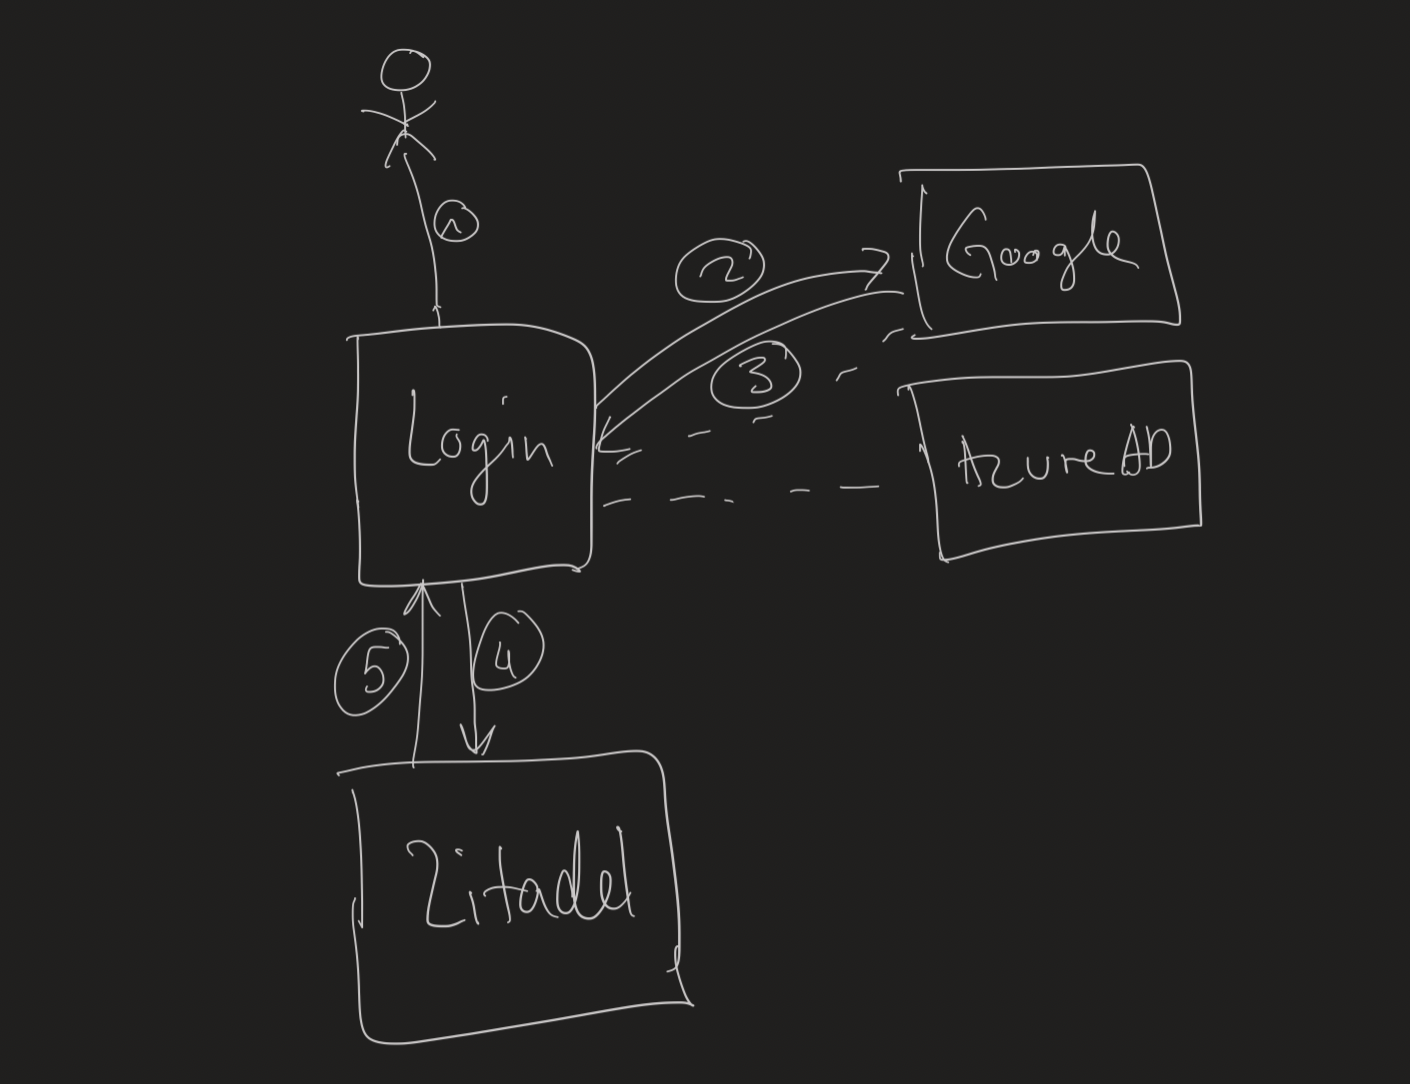 1
2
Google
3
Login
AzureAD
5
4
Zitadel